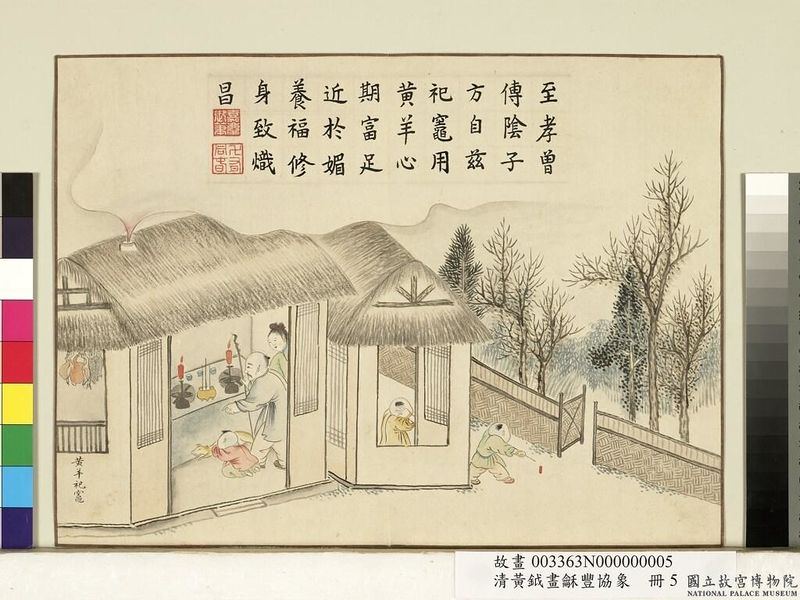 至孝曾
傳陰子
方自茲
祀竈用
黃羊心
期富足
近於媚
養福修
身致熾
昌
黃羊祀竈
故畫 003363N000000005
清黃鉞畫龢豐協象 冊 5
國立故宮博物院
NATIONAL PALACE MUSEUM